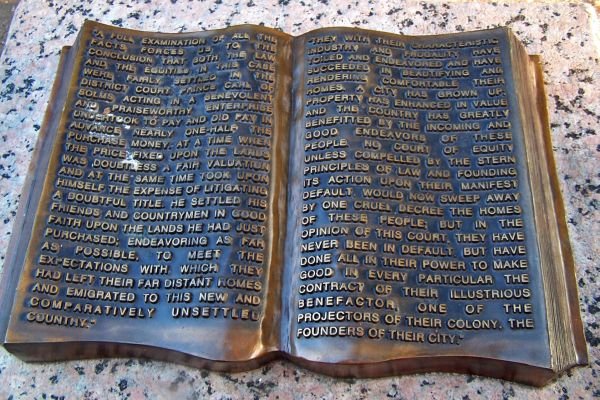 "A FULL EXAMINATION OF ALL THE
FACTS FORCES US TO THE
CONCLUSION THAT BOTH THE LAW
AND EQUITIES OF THIS CASE
WERE FAIRLY SETTLED IN THE
DISTRICT COURT. PRINCE CARL OF
SOLMS ACTING IN A BENEVOLENT
AND PRAISEWORTHY ENTERPRISE
UNDERTOOK TO PAY AND DID PAY IN
ADVANCE NEARLY ONE-HALF THE
PURCHASE MONEY, AT A TIME WHEN
THE PRICE FIXED UPON THE LANDS
WAS DOUBTLESS A FAIR VALUATION
AND AT THE SAME TIME TOOK UPON
HIMSELF THE EXPENSE OF LITIGATING
A DOUBTFUL TITLE. HE SETTLED HIS
FRIENDS AND COUNTRYMEN IN GOOD
FAITH UPON THE LANDS HE HAD JUST
PURCHASED; ENDEAVORING AS FAR
AS POSSIBLE, TO MEET THE
EXPECTATIONS WITH WHICH THEY
HAD LEFT THEIR FAR DISTANT HOMES
AND EMIGRATED TO THIS NEW AND
COMPARATIVELY UNSETTLED
COUNTRY."
"THEY WITH THEIR CHARACTERISTIC
INDUSTRY AND FRUGALITY HAVE
TOILED AND ENDEAVORED AND HAVE
SUCCEEDED IN BEAUTIFYING AND
RENDERING COMFORTABLE THEIR
HOMES. A CITY HAS GROWN UP,
PROPERTY HAS ENHANCED IN VALUE
AND THE COUNTRY HAS GREATLY
BENEFITTED BY THE INCOMING AND
GOOD ENDEAVORS OF THESE
PEOPLE. NO COURT OF EQUITY
UNLESS COMPELLED BY THE STERN
PRINCIPLES OF LAW AND FOUNDING
ITS ACTION UPON THEIR MANIFEST
DEFAULT, WOULD NOW SWEEP AWAY
BY ONE CRUEL DECREE THE HOMES
OF THESE PEOPLE; BUT IN THE
OPINION OF THIS COURT, THEY HAVE
NEVER BEEN IN DEFAULT, BUT HAVE
DONE ALL IN THEIR POWER TO MAKE
GOOD IN EVERY PARTICULAR THE
CONTRACT OF THEIR ILLUSTRIOUS
BENEFACTOR, ONE OF THE
PROJECTORS OF THEIR COLONY, THE
FOUNDERS OF THEIR CITY."